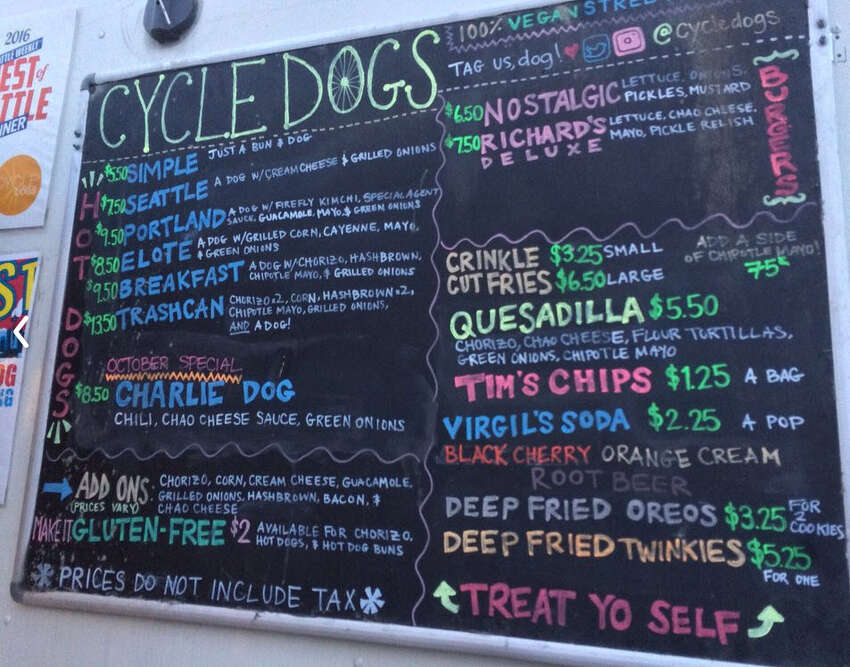 2016
WEEKLY
EST of
TTLE
NER
CYCLE DOGS
HOT DOGS
$5.50 SIMPLE JUST A BUN & DOG
$7.50 SEATTLE A DOG W/CREAM CHEESE & GRILLED ONIONS
$9.50 PORTLAND A DOG W/ FIREFLY KIMCHI, SPECIAL AGENT
SAUCE, GUACAMOLE, MAYO, & GREEN ONIONS
$8.50 ELOTE A DOG W/GRILLED CORN, CAYENNE, MAYO,
& GREEN ONIONS
$9.50 BREAKFAST A DOG W/CHORIZO, HASHBROWN,
CHIPOTLE MAYO, & GRILLED ONIONS
$13.50 TRASHCAN CHORIZO x2, CORN, HASHBROWN x2,
CHIPOTLE MAYO, GRILLED ONIONS,
AND A DOG!
OCTOBER SPECIAL
$8.50 CHARLIE DOG
CHILI, CHAO CHEESE SAUCE, GREEN ONIONS
ADD ONS: CHORIZO, CORN, CREAM CHEESE, GUACAMOLE,
(PRICES VARY) GRILLED ONIONS, HASHBROWN, BACON, &
CHAO CHEESE
MAKE IT GLUTEN-FREE $2 AVAILABLE FOR CHORIZO,
HOT DOGS, & HOT DOG BUNS
* PRICES DO NOT INCLUDE TAX *
100% VEGAN STREE
TAG US, dog! @cycledogs
BURGERS
$6.50 NOSTALGIC LETTUCE, ONIONS,
PICKLES, MUSTARD
$7.50 RICHARD'S LETTUCE, CHAO CHEESE,
DELUXE MAYO, PICKLE RELISH
CRINKLE $3.25 SMALL
CUT FRIES $6.50 LARGE
ADD A SIDE
OF CHIPOTLE MAYO!
75¢
QUESADILLA $5.50
CHORIZO, CHAO CHEESE, FLOUR TORTILLAS,
GREEN ONIONS, CHIPOTLE MAYO
TIM'S CHIPS $1.25 A BAG
VIRGIL'S SODA $2.25 A POP
BLACK CHERRY ORANGE CREAM
ROOT BEER
DEEP FRIED OREOS $3.25 FOR
2
COOKIES
DEEP FRIED TWINKIES $5.25
FOR ONE
TREAT YO SELF